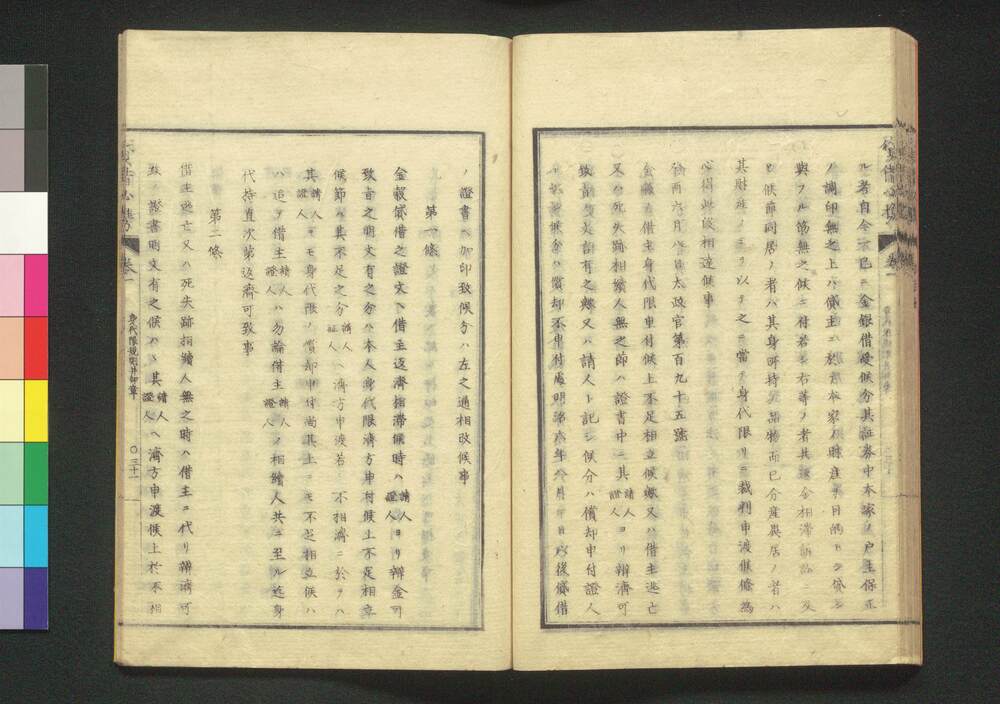 ル者自今已ニ金銀借受候分其証券中本家ノ戸主保正
ノ調印無之上ハ債主ニ於テ本家ノ財産ヲ目的トシ貸シ
與フル筋無之候ニ付若シ右等ノ者其返金相滞訴訟ニ及
候節同居ノ者ハ其身所持ノ品物而已分産異居ノ者ハ
其財産ノミヲ以テ之ニ當テ身代限リニ裁判申渡候條為
心得此段相達候事
六月八日太政官第百九十五號
金穀ノ借主身代限申付候上不足相立候歟又ハ借主逃亡
又ハ死失跡相續人無之節ハ證書中ニ其請人證人ヨリ辨濟可
致旨ノ文詰有之歟又ハ請人ト記シ候分ハ償却申付證人
候分ハ償却不申付處明治六年 月 日ヨリ後貸借
ノ證書ヘ加印致候分ハ左之通相改候事
第一條
金穀貸借之證文ヘ借主返濟相滞候時ハ請人證人ヨリ辨金可
致旨之明文有之分ハ本人身代限濟方申付候上不足相立
候節ハ其不足之分請人証人ヘ濟方申渡若シ不相濟ニ於テハ
其請人證人ヲモ身代限ノ償却申付尚其上ニモ不足相立候ハ
ハ追テ借主請人證人ハ勿論借主請人證人ノ相續人共ニ至ル迄身
代持直次第返濟可致事
第二條
借主逃亡又ハ死失跡相續人無之時ハ借主ニ代リ辨濟可
致ノ證書明文有之候ハヽ其請人證人ヘ濟方申渡候上於不相
貸借必携
卷一
身代限規則并印章
〇三十二